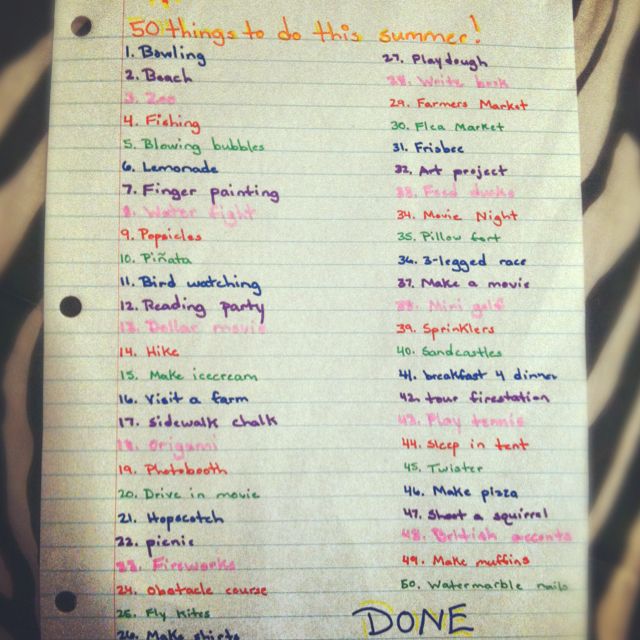 50 things to do this summer!
1. Bowling
2. Beach
3. Zoo
4. Fishing
5. Blowing bubbles
6. Lemonade
7. Finger painting
8. Water fight
9. Popsicles
10. Piñata
11. Bird watching
12. Reading party
13. Dollar movie
14. Hike
15. Make icecream
16. Visit a farm
17. Sidewalk chalk
18. Origami
19. Photobooth
20. Drive in movie
21. Hopscotch
22. picnic
23. Fireworks
24. obstacle course
25. Fly kites
26. Make shirts
27. Playdough
28. Write book
29. Farmers Market
30. Flea Market
31. Frisbee
32. Art project
33. Feed ducks
34. Movie Night
35. Pillow fort
36. 3-legged race
37. Make a movie
38. Mini golf
39. Sprinklers
40. Sandcastles
41. breakfast 4 dinner
42. tour firestation
43. Play tennis
44. Sleep in tent
45. Twister
46. Make pizza
47. Shoot a squirrel
48. British accents
49. Make muffins
50. Watermarble nails
DONE